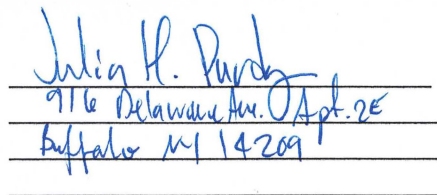 Julia H. Purdy
916 Delaware Ave. Apt. 2E
Buffalo NY 14209